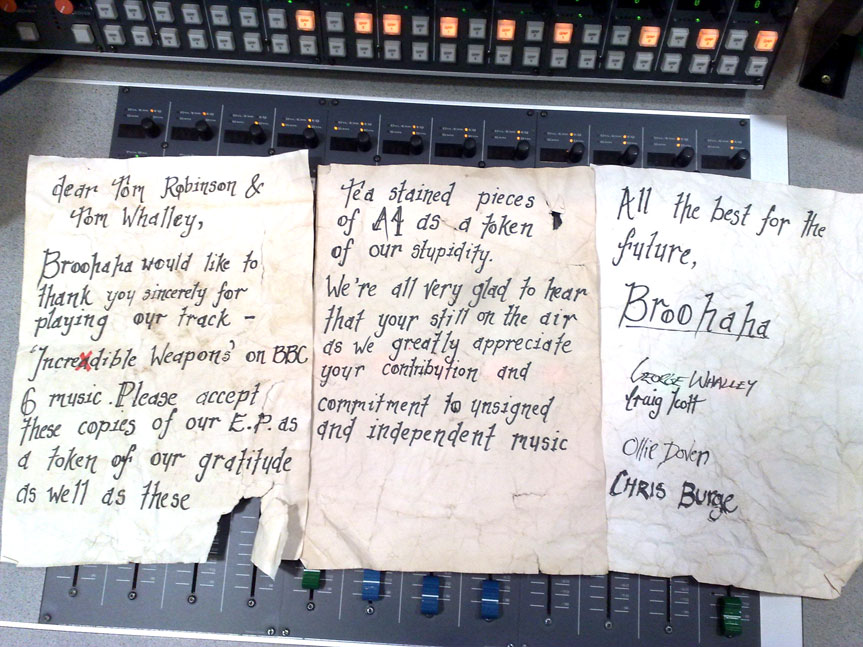 dear Tom Robinson &
Tom Whalley,
Broohaha would like to
thank you sincerely for
playing our track -
'Increadible Weapons' on BBC
6 music. Please accept
these copies of our E.P. as
a token of our gratitude
as well as these
Tea stained pieces
of A4 as a token
of our stupidity.
We're all very glad to hear
that your still on the air
as we greatly appreciate
your contribution and
commitment to unsigned
and independent music
All the best for the
future,
Broohaha
GEORGE WHALLEY
Craig Scott
Ollie Dover
CHRIS BURGE